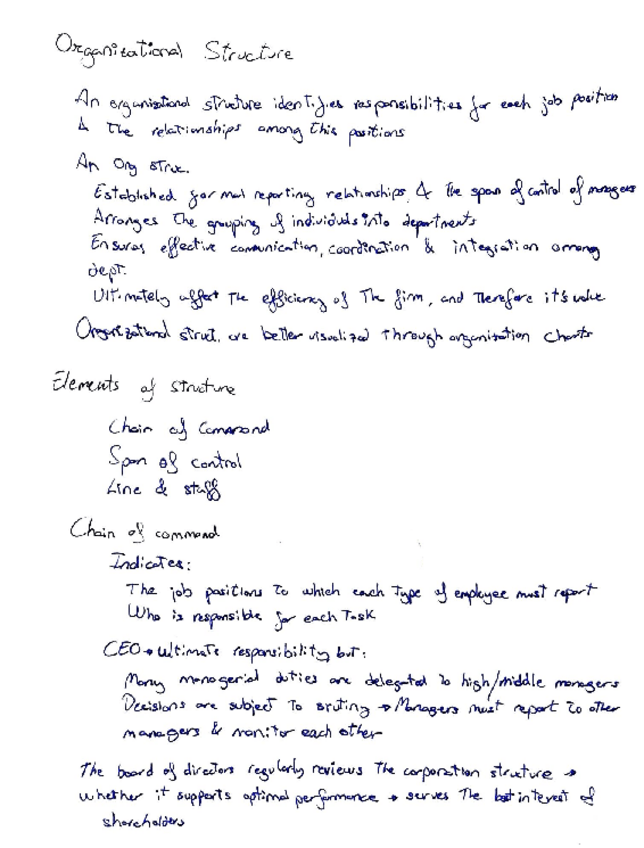 Organizational Structure
An organizational structure identifies responsibilities for each job position
& The relationships among this positions
An Org struc.
Established formal reporting relationships, & the span of control of managers
Arranges The grouping of individuals into departments
Ensures effective communication, coordination & integration among
dept.
Ultimately affect The efficiency of The firm, and Therefore it's value
Organizational struct. are better visualized Through organization charts
Elements of structure
Chain of Command
Span of control
Line & staff
Chain of command
Indicates:
The job positions To which each Type of employee must report
Who is responsible for each Task
CEO → ultimate responsibility but:
Many managerial duties are delegated to high/middle managers
Decisions are subject To → Managers must report to other
managers & monitor each other
The board of directors regularly reviews The corporation structure →
whether it supports optimal performance → serves The best interest of
shareholders